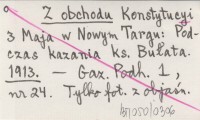 Z obchodu Konstytucyi
3 Maja w Nowym Targu: Pod-
czas kazania ks. Bułata.
1913. — Gaz. Podh. 1,
nr 24. Tylko fot. z objaśn.